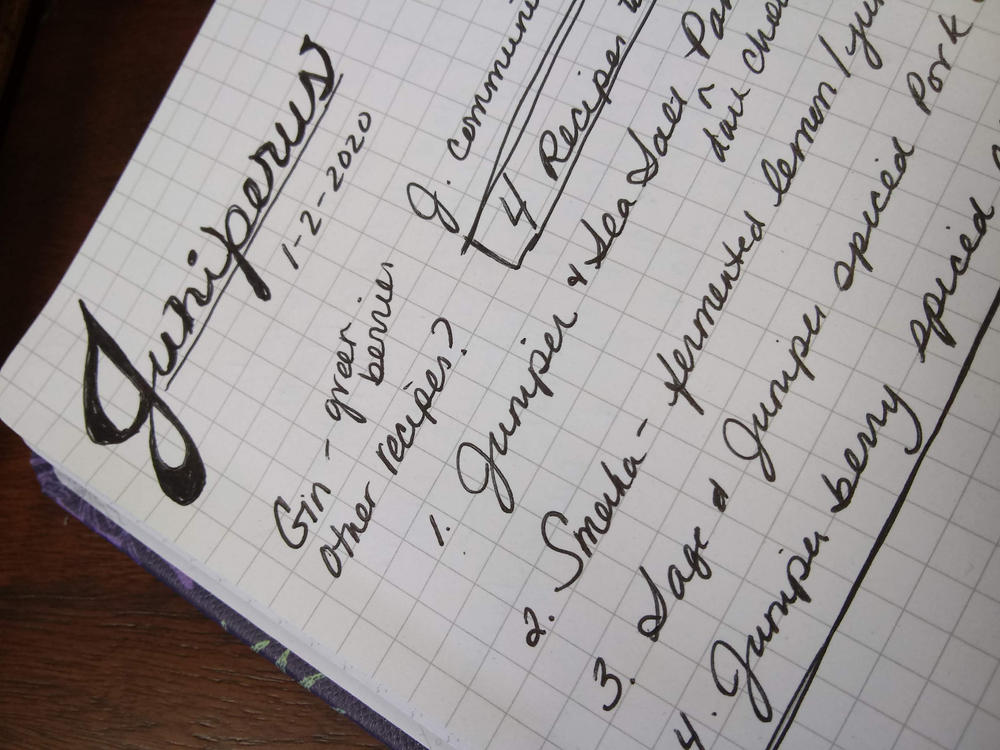 Juniperus
1-2-2020
J. communi
Gin - green
berries
Other recipes?
4 Recipes
1. Juniper & Sea Salt
dark
2. Smerka - fermented lemon/jun
3. Sage & Juniper spiced Pork
4. Juniper berry spiced